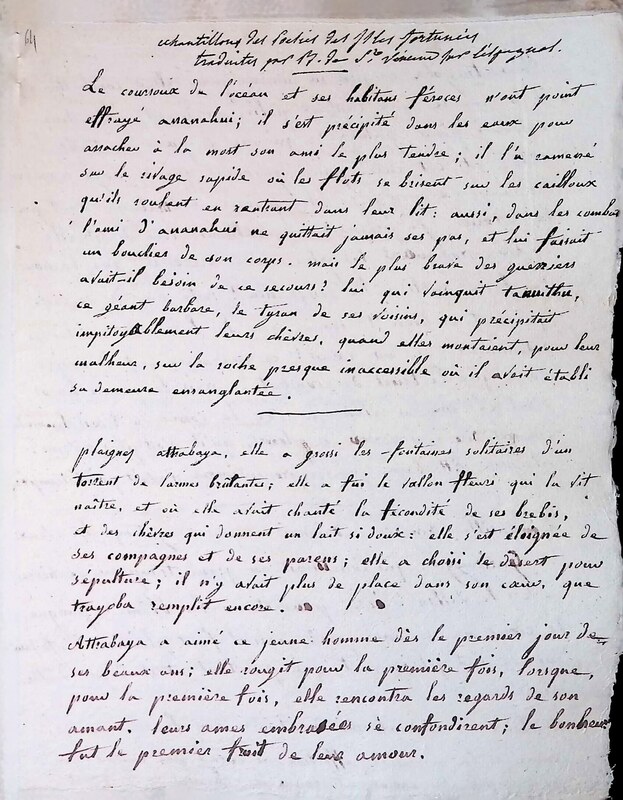 64
échantillons des Poésies des Isles fortunées
traduites par M. de St. Vincent sur l'espagnol.
Le courroux de l'océan et ses habitans féroces n'ont point
effrayé ananahui; il s'est précipité dans les eaux pour
arracher à la mort son ami le plus tendre; il l'a ramené
sur le rivage rapide où les flots se brisent sur les cailloux
qu'ils roulent en rentrant dans leur lit: aussi, dans les combats
l'ami d'ananahui ne quittait jamais ses pas, et lui faisait
un bouclier de son corps. mais le plus brave des guerriers
avait-il besoin de ce secours? lui qui vainquit
ce géant barbare, le tyran de ses voisins, qui précipitait
impitoyablement leurs chèvres, quand elles montaient, pour leur
malheur, sur la roche presque inaccessible où il avait établi
sa demeure ensanglantée.
plaignez attrabaya, elle a grossi les fontaines solitaires d'un
torrent de larmes brûlantes; elle a fui le vallon fleuri qui la vit
naître, et où elle avait chanté la fécondité de ses brebis,
et des chèvres qui donnent un lait si doux: elle s'est éloignée de
ses compagnes et de ses parens; elle a choisi le désert pour
sépulture; il n'y avait plus de place dans son cœur, que
trayoba remplit encore.
Attrabaya a aimé ce jeune homme dès le premier jour de
ses beaux ans; elle rougit pour la première fois, lorsque,
pour la première fois, elle rencontra les regards de son
amant. leurs ames embrasées se confondirent; le bonheur
fut le premier fruit de leur amour.